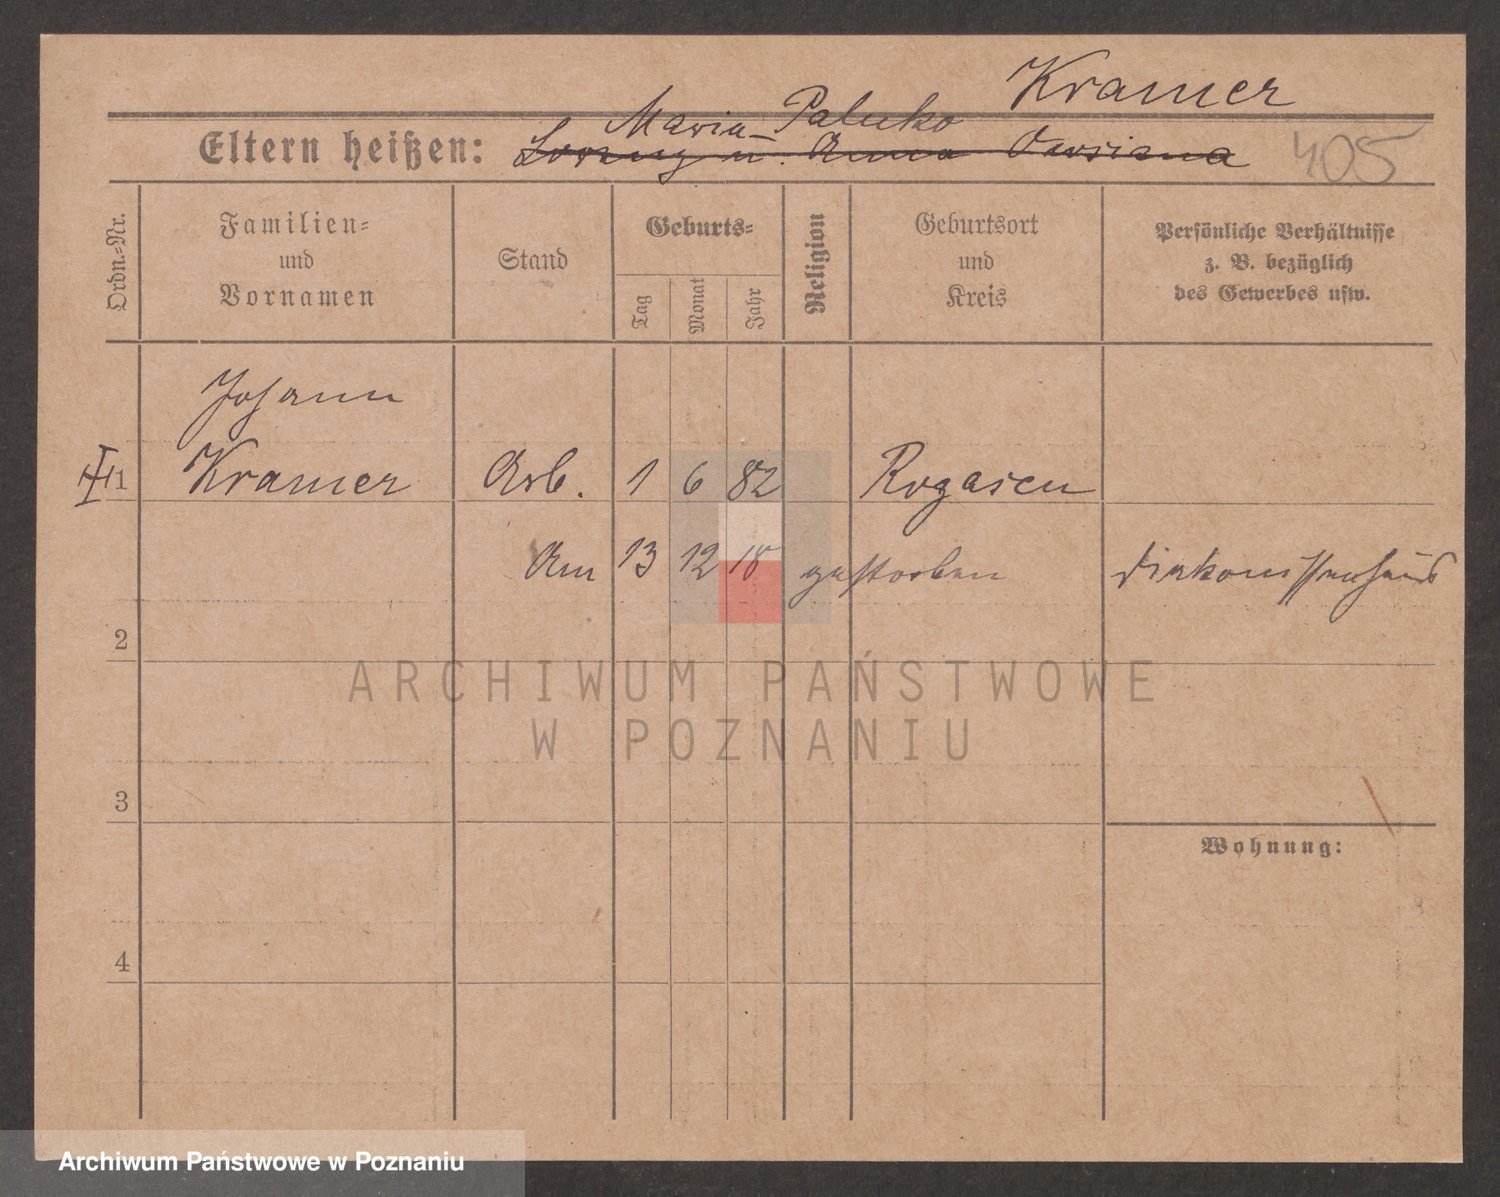 Kramer
Maria Paluko
Eltern heißen: Lorenz u. Anna Owsiana 405
Ordn.-Nr.
Familien-
und
Vornamen
Stand
Geburts-
Tag
Monat
Jahr
Religion
Geburtsort
und
Kreis
Persönliche Verhältnisse
z. B. bezüglich
des Gewerbes usw.
Johann
1 Kramer Arb. 1 6 82 Rogasen
Am 13 12 18 gestorben Diakonissenhaus
2
ARCHIWUM PAŃSTWOWE
W POZNANIU
3
Wohnung:
4
Archiwum Państwowe w Poznaniu